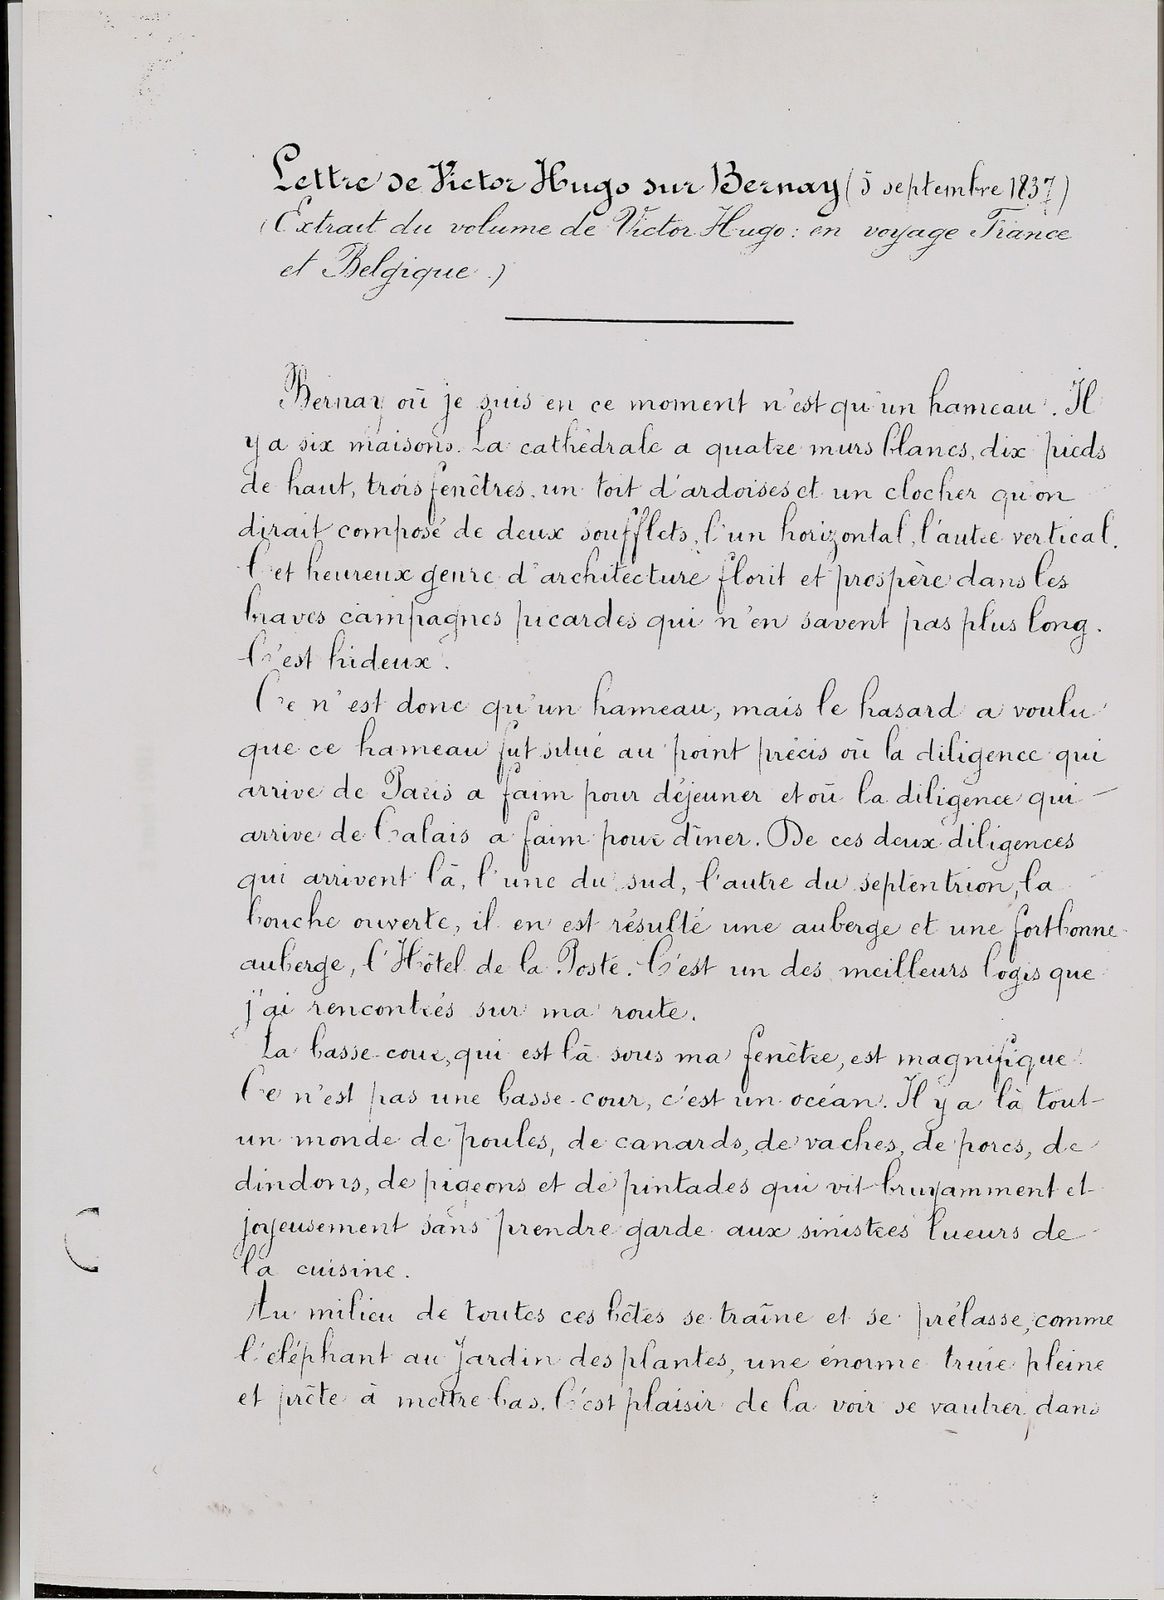 Lettre de Victor Hugo sur Bernay (5 septembre 1837)
(Extrait du volume de Victor Hugo : en voyage France
et Belgique.)
Bernay où je suis en ce moment n'est qu'un hameau. Il
y a six maisons. La cathédrale a quatre murs blancs, dix pieds
de haut, trois fenêtres, un toit d'ardoises et un clocher qu'on
dirait composé de deux soufflets, l'un horizontal, l'autre vertical.
Cet heureux genre d'architecture florit et prospère dans les
braves campagnes picardes qui n'en savent pas plus long.
C'est hideux.
Ce n'est donc qu'un hameau, mais le hasard a voulu
que ce hameau fut situé au point précis où la diligence qui
arrive de Paris a faim pour déjeuner et où la diligence qui
arrive de Calais a faim pour dîner. De ces deux diligences
qui arrivent là, l'une du sud, l'autre du septentrion, la
bouche ouverte, il en est résulté une auberge et une fort bonne
auberge, l'Hôtel de la Poste. C'est un des meilleurs logis que
j'ai rencontrés sur ma route.
La basse-cour, qui est là sous ma fenêtre, est magnifique.
Ce n'est pas une basse-cour, c'est un océan. Il y a là tout
un monde de poules, de canards, de vaches, de porcs, de
dindons, de pigeons et de pintades qui vit bruyamment et
joyeusement sans prendre garde aux sinistres lueurs de
la cuisine.
Au milieu de toutes ces bêtes se traîne et se prélasse, comme
l'éléphant au Jardin des plantes, une énorme truie pleine
et prête à mettre bas. C'est plaisir de la voir se vautrer dans